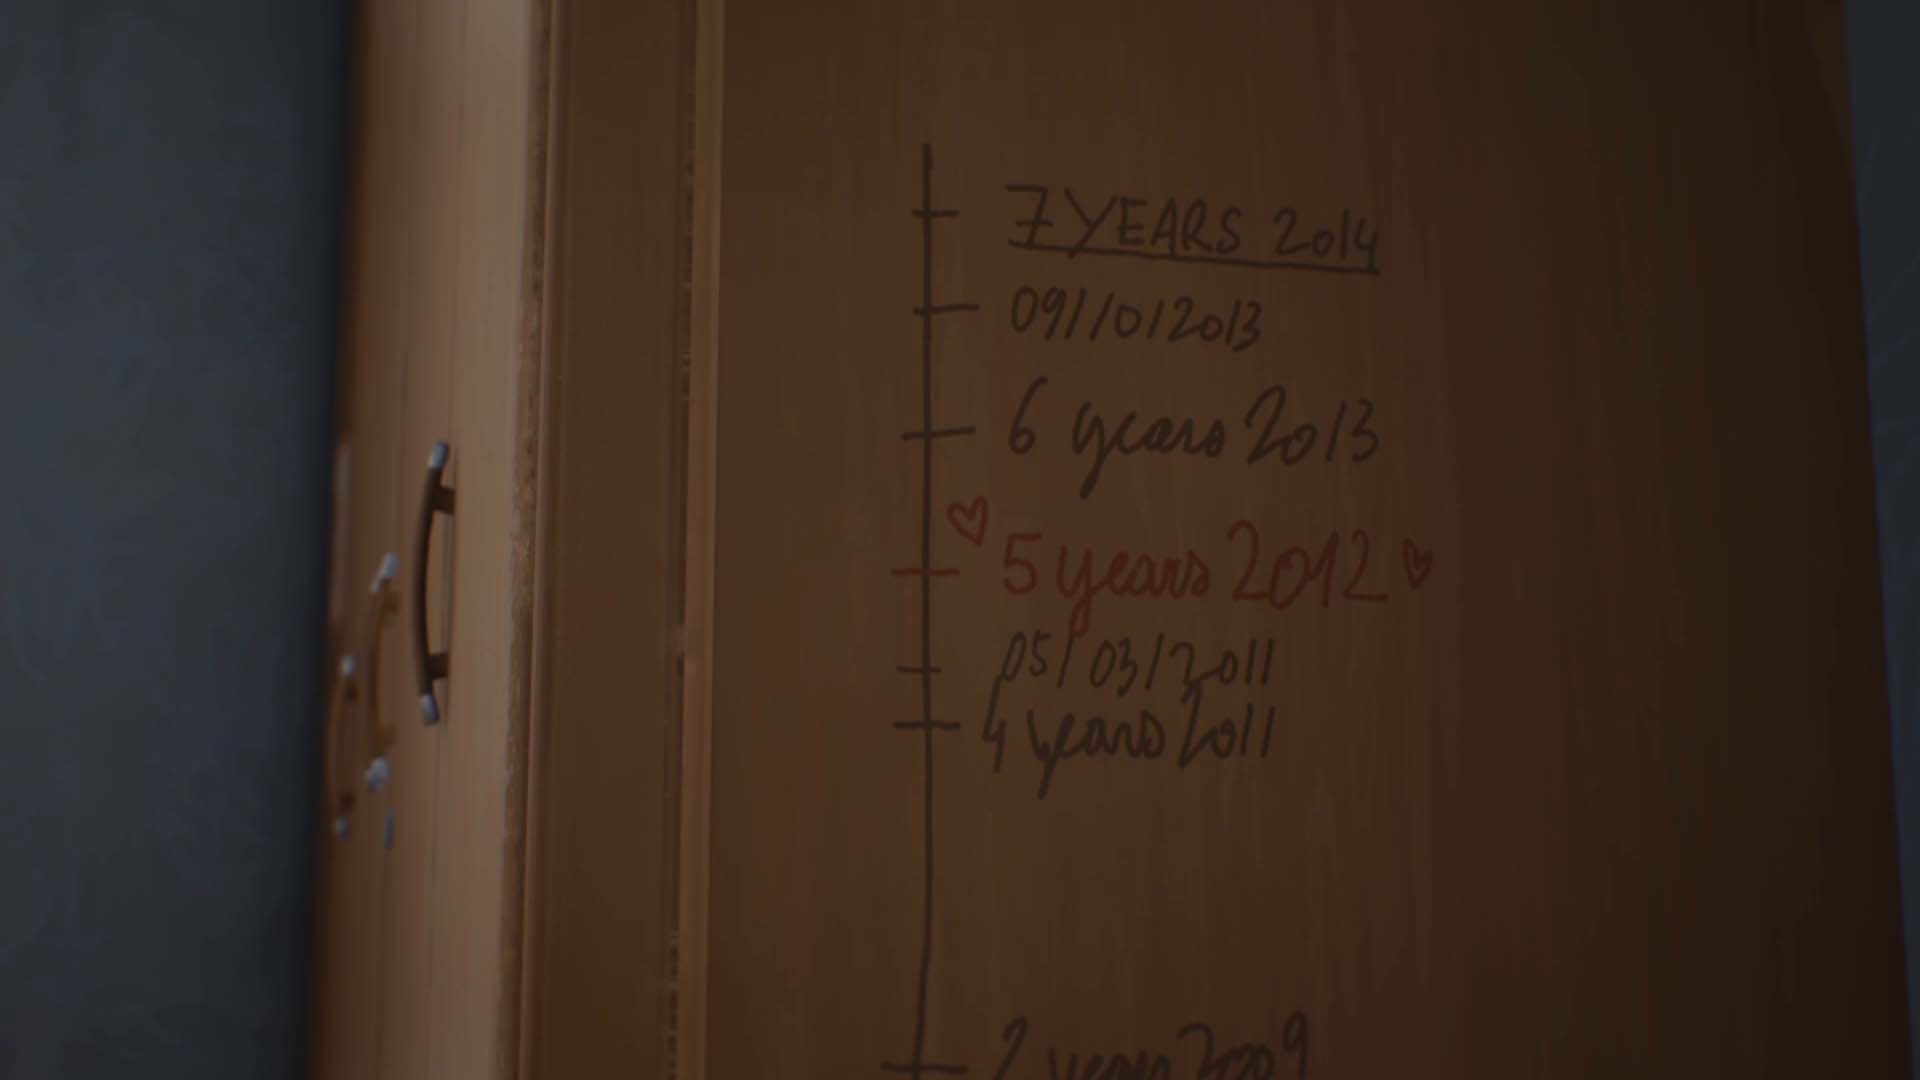 7 YEARS 2014
09/10/2013
6 years 2013
5 years 2012
05/03/2011
4 years 2011
2 years 2009